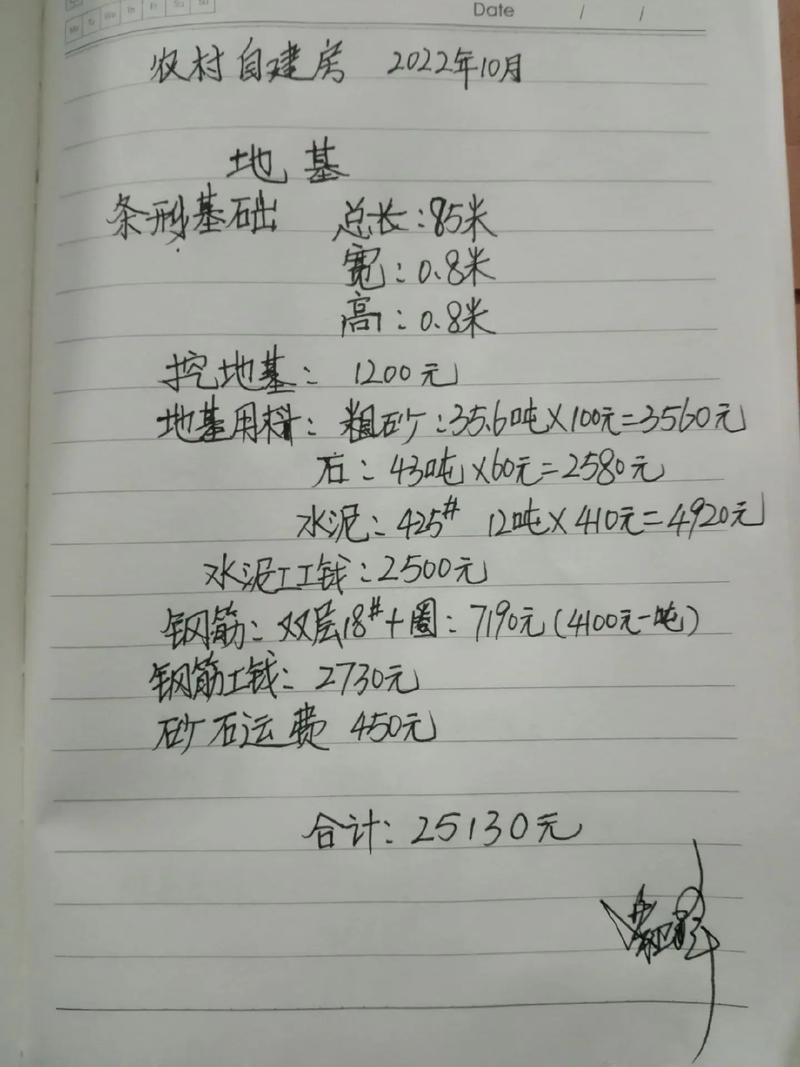 Date / /
农村自建房 2022年10月
地基
条形基础 总长:85米
宽:0.8米
高:0.8米
挖地基: 1200元
地基用料: 粗砂:35.6吨×100元=3560元
石:43吨×60元=2580元
水泥:425# 12吨×410元=4920元
水泥工工钱:2500元
钢筋:双层18#+圈:7190元(4100元一吨)
钢筋工钱:2730元
砂石运费 450元
合计:25130元